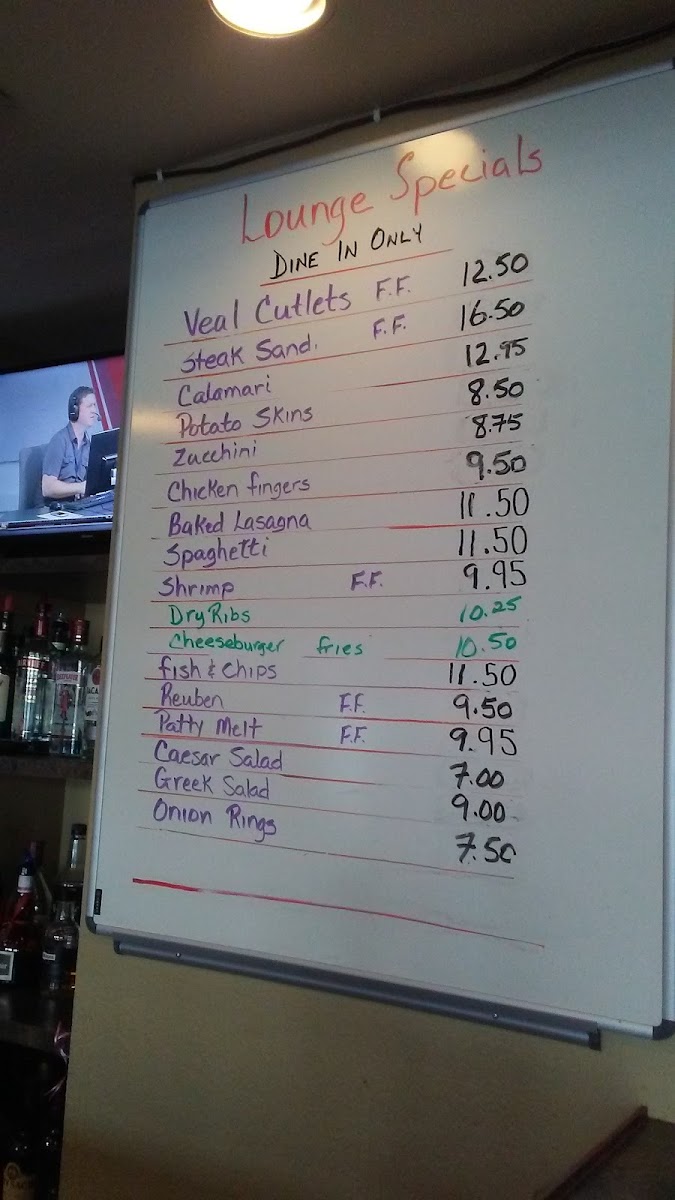 Lounge Specials
DINE IN ONLY
Veal Cutlets F.F. 12.50
Steak Sand. F.F. 16.50
Calamari 12.95
Potato Skins 8.50
Zucchini 8.75
Chicken fingers 9.50
Baked Lasagna 11.50
Spaghetti 11.50
Shrimp F.F. 9.95
Dry Ribs 10.25
Cheeseburger fries 10.50
fish & Chips 11.50
Reuben F.F. 9.50
Patty Melt F.F. 9.95
Caesar Salad 7.00
Greek Salad 9.00
Onion Rings 7.50